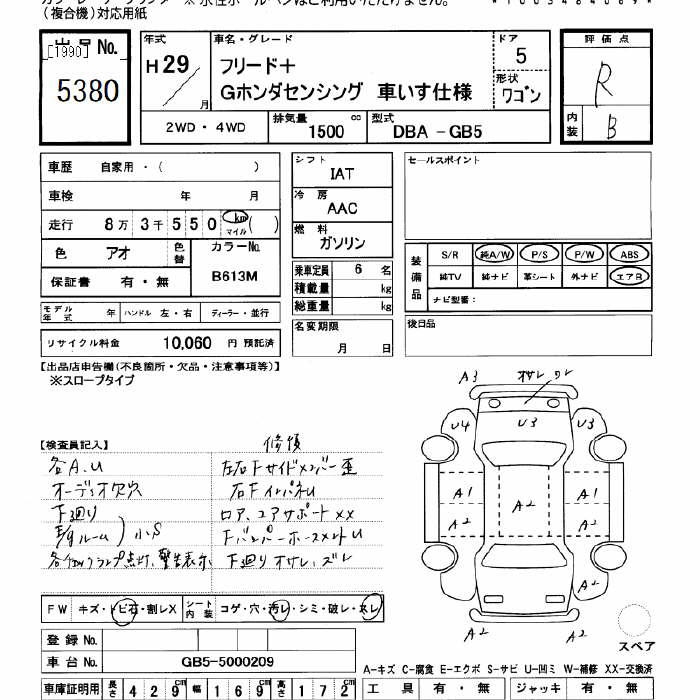 (複合機)対応用紙
出品No. [1990] 5380
年式 H29 / 月
車名・グレード フリード+
Gホンダセンシング 車いす仕様
ドア 5
形状 ワゴン
評価点 R
内装 B
2WD・4WD 排気量 1500 cc 型式 DBA -GB5
車歴 自家用・( )
車検 年 月
走行 8万 3千 5 5 0 km マイル ( )
色 アオ 色替 カラーNo. B613M
保証書 有・無
モデル年式 年 ハンドル 左・右 ディーラー・並行
リサイクル料金 10,060 円 預託済
シフト IAT
冷房 AAC
燃料 ガソリン
乗車定員 6 名
積載量 kg
総重量 kg
名変期限 月 日
セールスポイント
装備品 S/R 純A/W P/S P/W ABS
純TV 純ナビ 革シート 外ナビ エアB
ナビ型番:
後日品
【出品店申告欄(不良箇所・欠品・注意事項等)】
※スロープタイプ
【検査員記入】
各A.U
オーディオ欠穴
下廻り
小S
修復
左右Fサイドメンバー歪
右FインパネU
ロア、コアサポートXX
下廻りオサレ、ズレ
A3
U4 U3 U3
A1 A2 A1
A2 A2
A2
A2 A2
FW キズ・トビ石・割レX シート内装 コゲ・穴・汚レ・シミ・破レ・スレ
登録No.
車台No. GB5-5000209
車庫証明用 長さ 4 2 9 cm 幅 1 6 9 cm 高さ 1 7 2 cm
スペア
A-キズ C-腐食 E-エクボ S-サビ U-凹ミ W-補修 XX-交換済
工具 有・無 ジャッキ 有・無